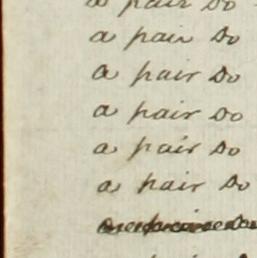 a pair Do
a pair Do
a pair Do
a pair Do
a pair Do
a pair Do